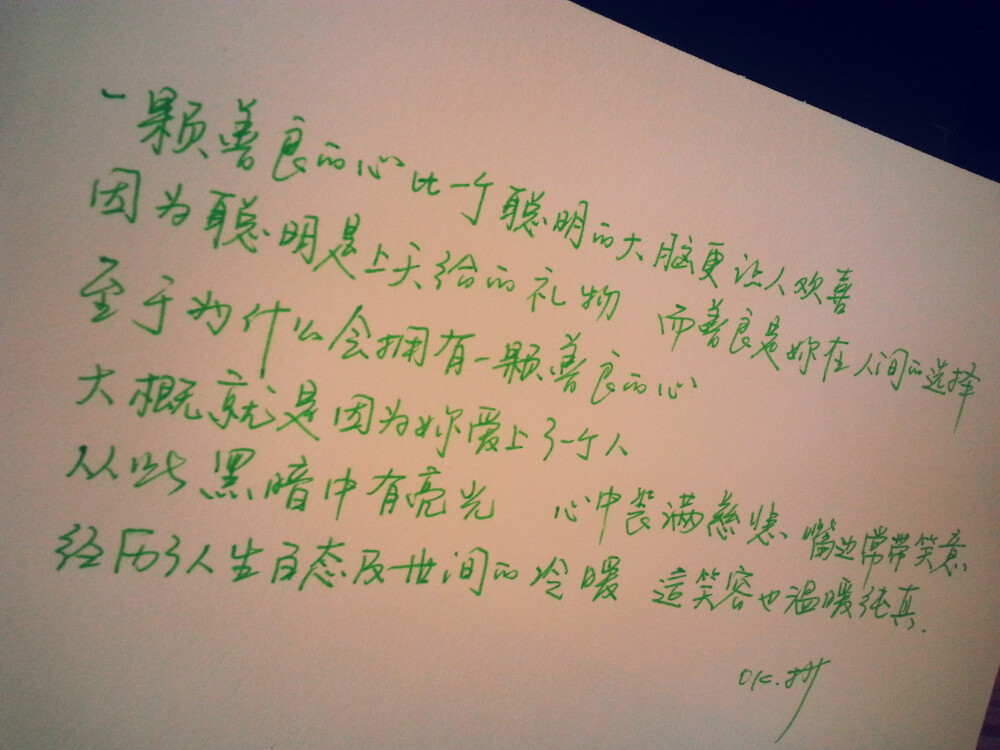 一颗善良的心比一个聪明的大脑更让人欢喜
因为聪明是上天给的礼物 而善良是妳在人间的选择
至于为什么会拥有一颗善良的心
大概就是因为妳爱上了一个人
从此黑暗中有亮光 心中装满慈悲 嘴边常带笑意
经历了人生百态及世间的冷暖 這笑容也温暖纯真.
OK.抄